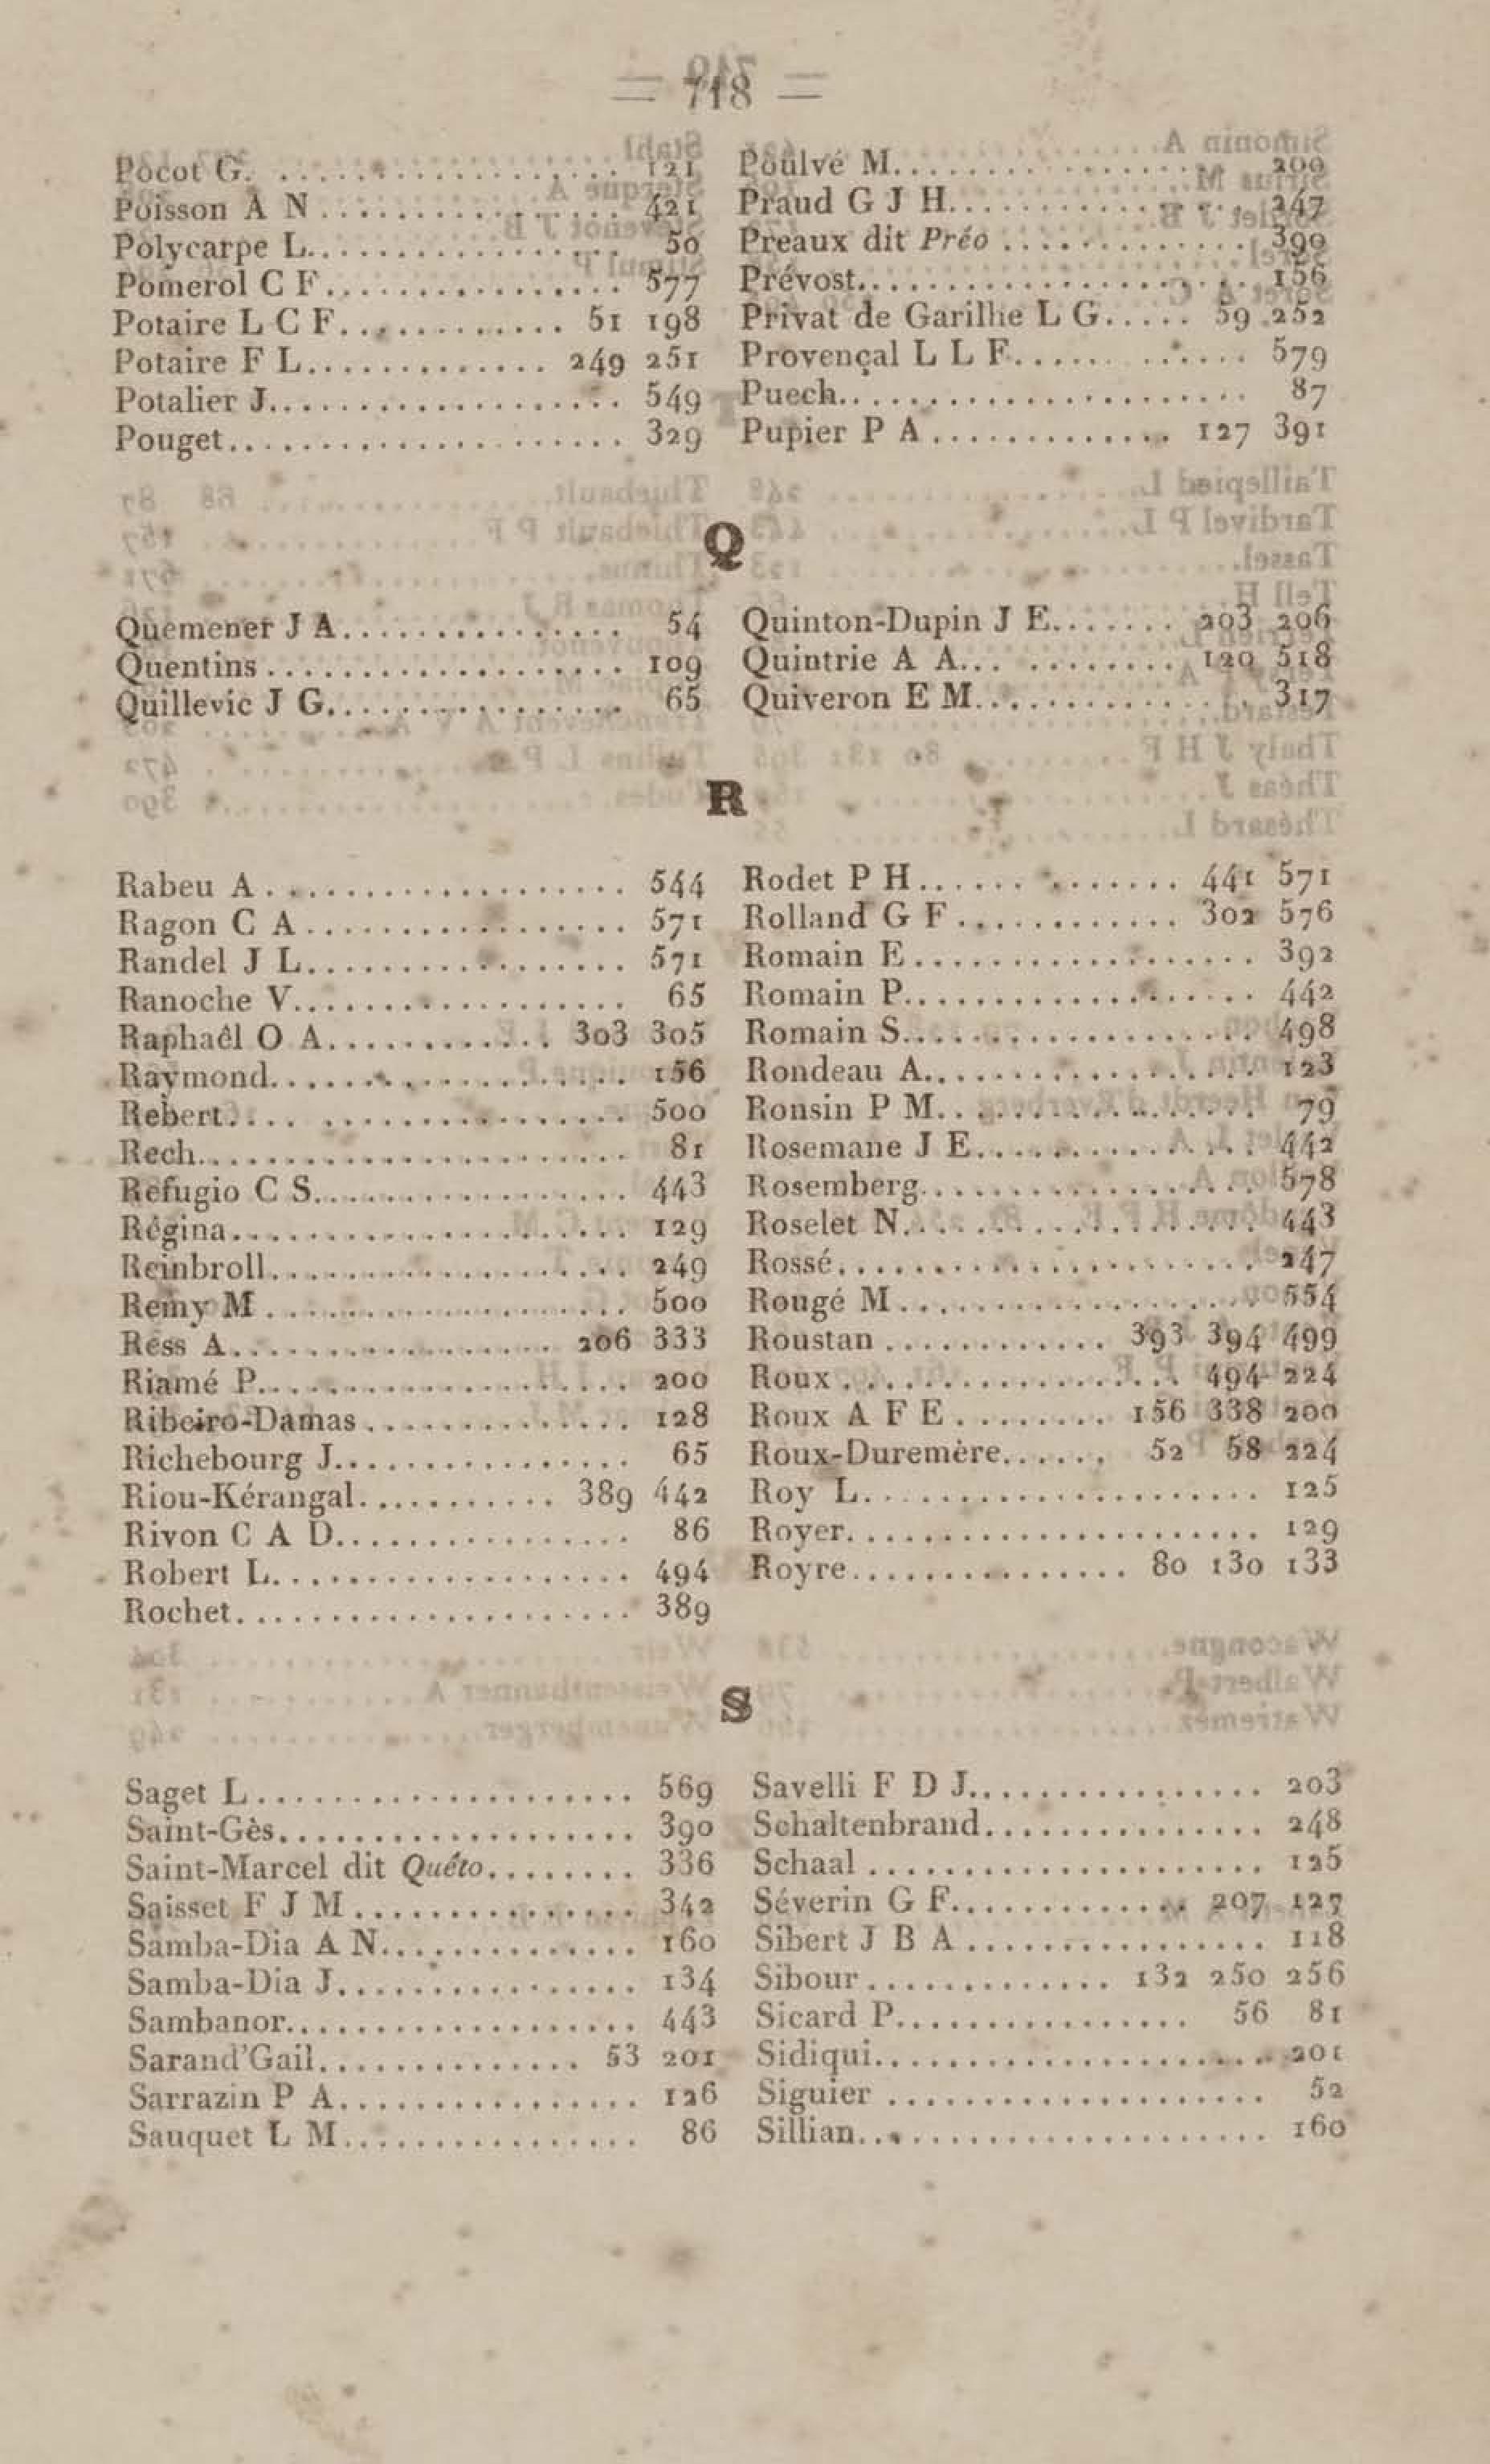 = 718 =
Pocot G. .................. 121
Poisson A N ................ 421
Polycarpe L................. 50
Pomerol C F................. 577
Potaire L C F............ 51 198
Potaire F L............. 249 251
Potalier J................... 549
Pouget...................... 329
Poulvé M.................. 200
Praud G J H................ 247
Preaux dit Préo ............. 390
Prévost...................... 156
Privat de Garilhe L G..... 59 252
Provençal L L F............. 579
Puech....................... 87
Pupier P A ............. 127 391
Q
Quemener J A................ 54
Quentins ................... 109
Quillevic J G................ 65
Quinton-Dupin J E....... 203 206
Quintrie A A... ........ 120 518
Quiveron E M............... 317
R
Rabeu A .................... 544
Ragon C A .................. 571
Randel J L.................. 571
Ranoche V.................. 65
Raphaêl O A............ 303 305
Raymond.................... 156
Rebert.... ................. 500
Rech........................ 81
Refugio C S................. 443
Régina...................... 129
Reinbroll.................... 249
Remy M .................... 500
Ress A.................. 206 333
Riamé P.................... 200
Ribeiro-Damas .............. 128
Richebourg J................ 65
Riou-Kérangal........... 389 442
Rivon C A D................ 86
Robert L.................... 494
Rochet...................... 389
Rodet P H.............. 441 571
Rolland G F ............ 302 576
Romain E................... 392
Romain P................... 442
Romain S................... 498
Rondeau A.................. 123
Ronsin P M................. 79
Rosemane J E............... 442
Rosemberg.................. 578
Roselet N................... 443
Rossé....................... 247
Rougé M.................... 554
Roustan ............ 393 394 499
Roux .................. 494 224
Roux A F E ........ 156 338 200
Roux-Duremère...... 52 58 224
Roy L...................... 125
Royer....................... 129
Royre............... 80 130 133
S
Saget L..................... 569
Saint-Gès................... 390
Saint-Marcel dit Quéto........ 336
Saisset F J M ............... 342
Samba-Dia A N.............. 160
Samba-Dia J................ 134
Sambanor................... 443
Sarand'Gail.............. 53 201
Sarrazin P A................ 126
Sauquet L M................ 86
Savelli F D J................ 203
Schaltenbrand............... 248
Schaal ..................... 125
Séverin G F............. 207 127
Sibert J B A ................ 118
Sibour ............. 132 250 256
Sicard P................ 56 81
Sidiqui...................... 201
Siguier .................... 52
Sillian...................... 160